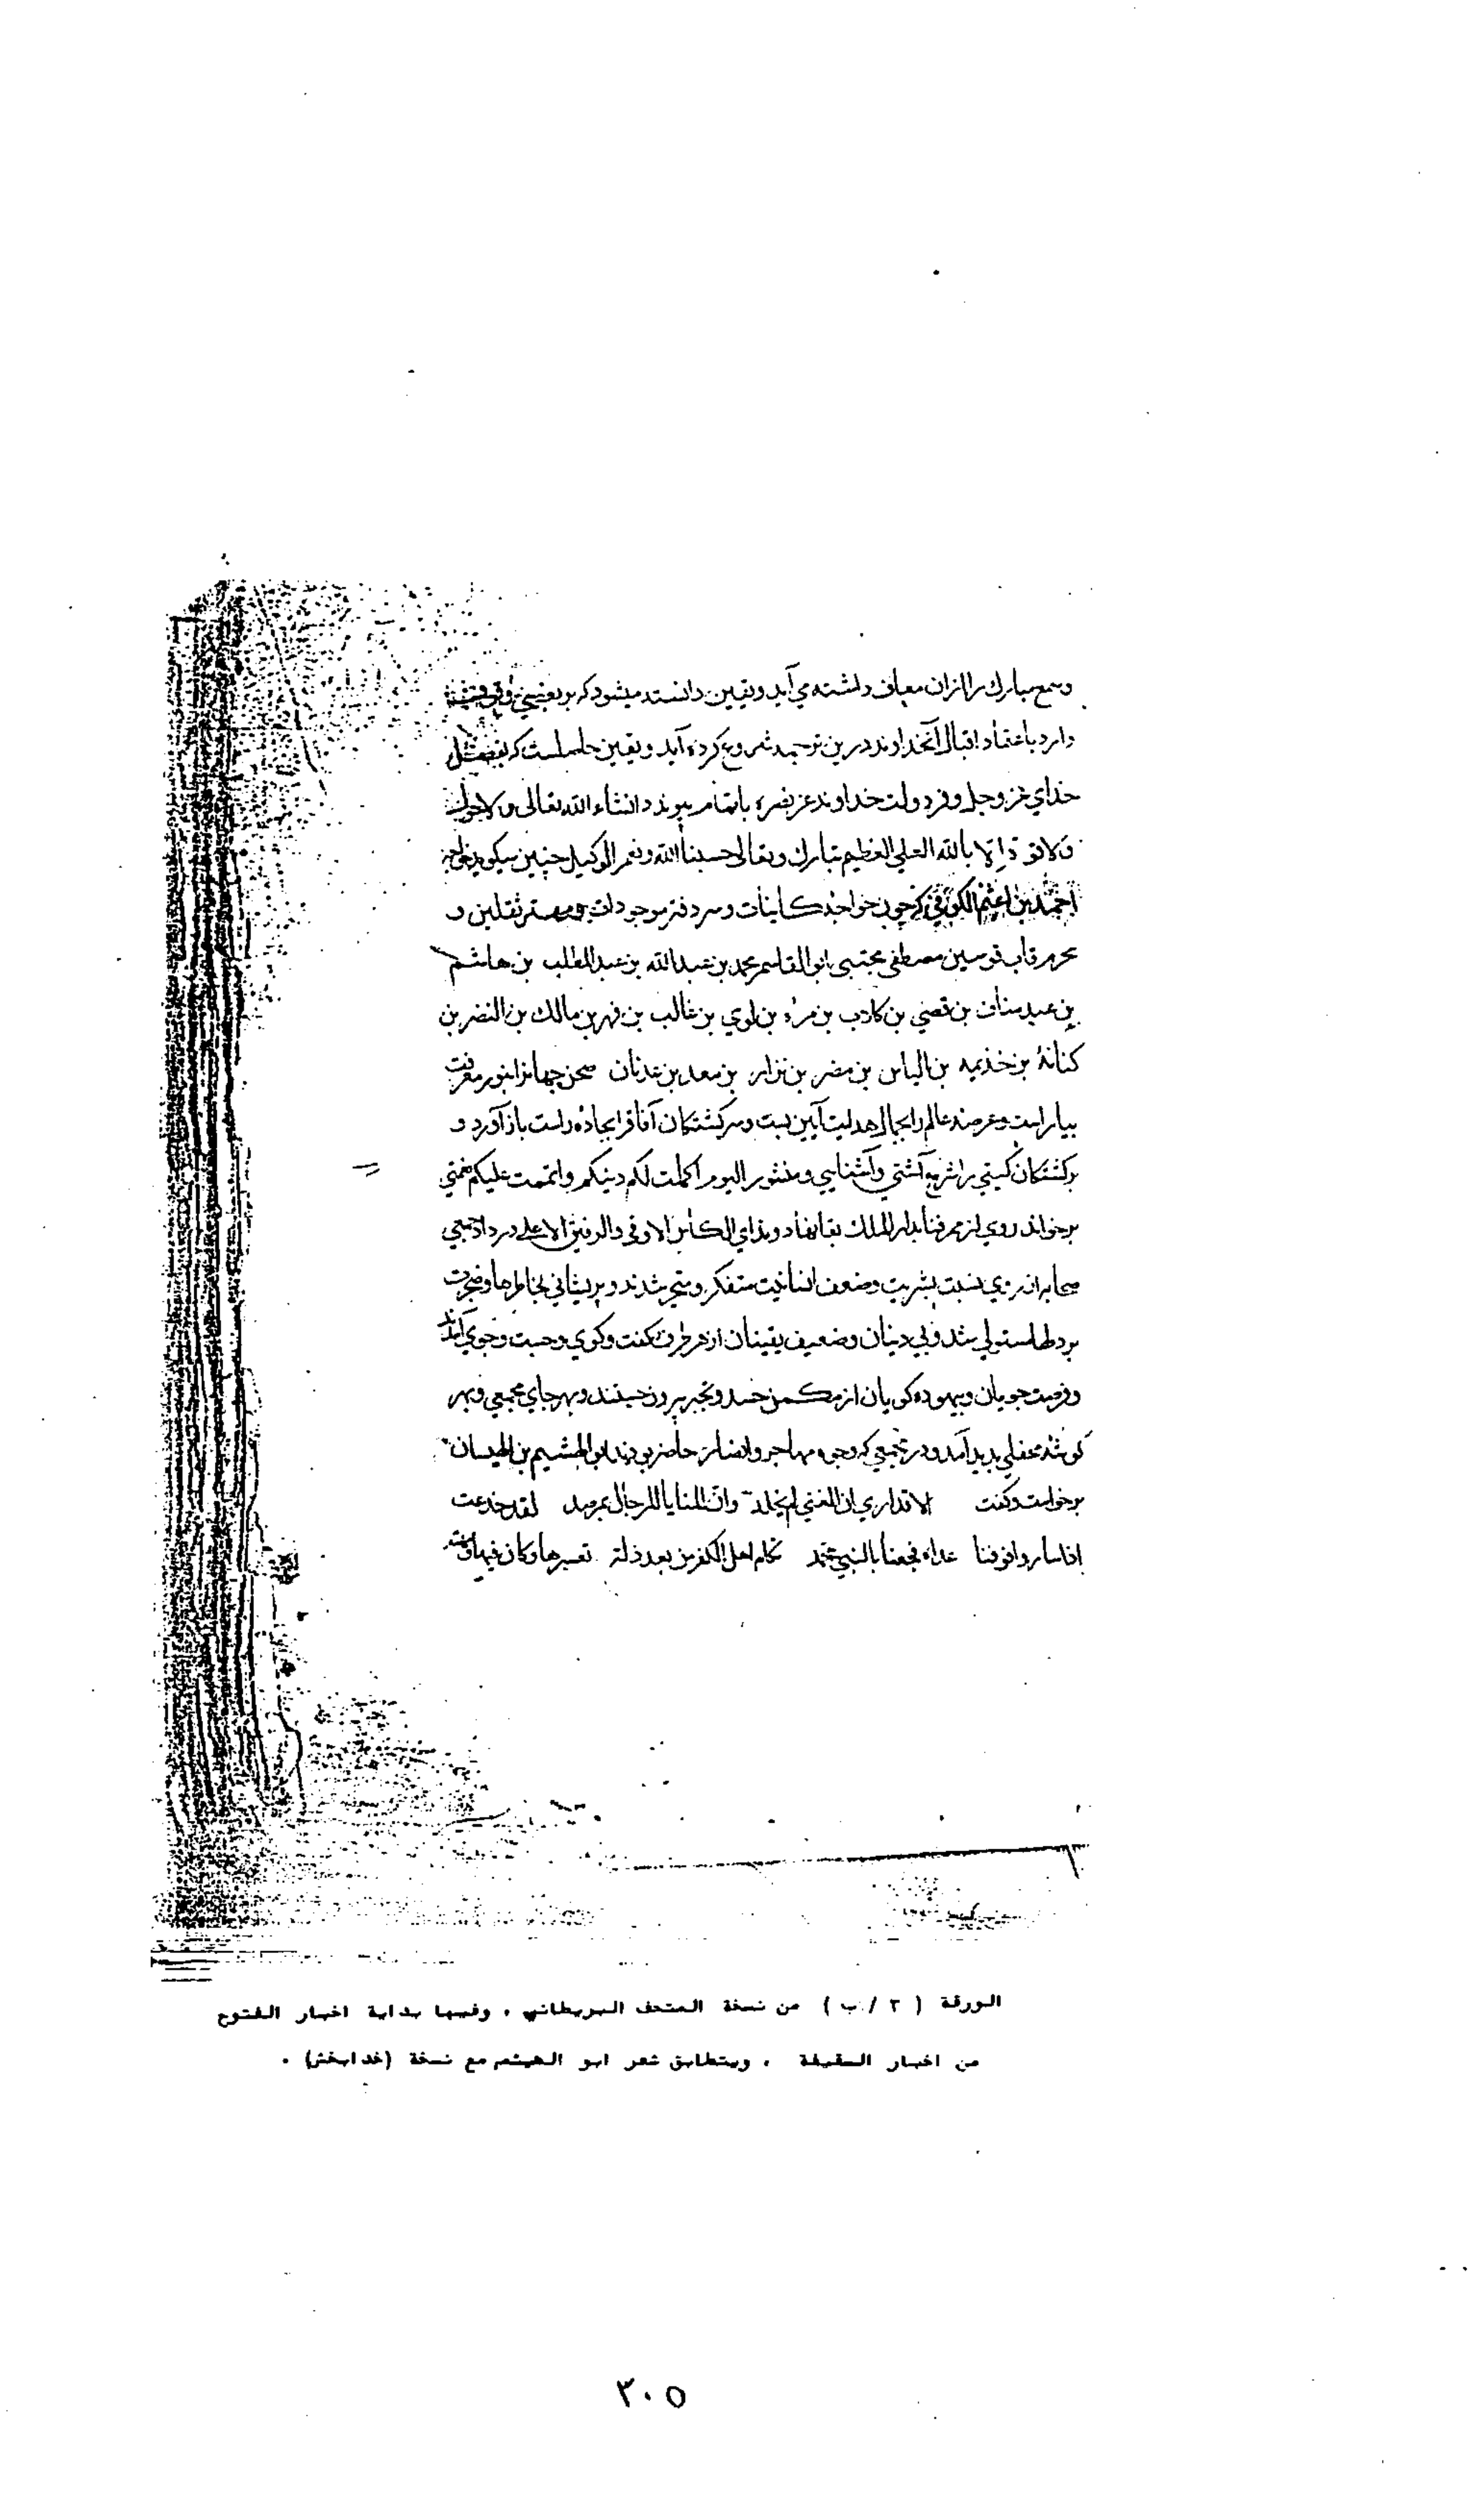 وسمع مبارك را ازان معاف داشته می آید ویقین دانسته میشود که هر
دارد باعتماد اقبال آنخداوند درین ترجمه شروع کرده آید ویقین حاصلست که بفضل
خدای عز وجل وفر دولت خداوند عز نصره باتمام پیوندد انشاء الله تعالی ولا حول
ولا قوة الا بالله العلي العظيم تبارك وتعالى حسبنا الله ونعم الوكيل چنین میکوید خواجه
احمد بن اعثم الكوفي که چون خواجه کاینات وسر دفتر موجودات ومهتر ثقلین و
محرم قاب قوسین مصطفی مجتبی ابو القاسم محمد بن عبد الله بن عبد المطلب بن هاشم
بن عبد مناف بن قصي بن كلاب بن مره بن لوي بن غالب بن فهر بن مالك بن النضر بن
كنانة بن خذيمه بن الياس بن مضر بن نزار بن معد بن عدنان صحن جهانرا بنور معرفت
بیاراست وعرصه عالم را بجمال هدایت آیین بست وسرکشتکان آفاق را بجاده راست باز آورد و
برکشتکان کیتی را شربه آشتی وآشنایی ومنشور اليوم اكملت لكم دينكم واتممت عليكم نعمتي
برخواند روی از ممر فنا بدار الملک بقا نهاد وندای الكأس الاوفی والرفيق الاعلی در داد جمعی
صحابه از روی نسبت بشریت وضعف انسانیت متفکر ومتحیر شدند وپریشانی بخاطرها وضجرت
بر دلها مستولی شد وبی دینان وضعیف یقینان از هر طرف بکفت وکوی وجست وجوی آمدند
وفرصت جویان وبیهوده کویان از مکمن حسد وتجبر بیرون جستند وبهر جای مجمعی وبهر
کوشه محفلی پدید آمد ودر مجمعی که وجوه مهاجر وانصار حاضر بودند ابو الهشيم بن التيهان
برخواست وکفت الا قد ارى ان الفتى لم يخلد وان المنايا للرجال بمرصد لقد جدعت
اذاننا وانوفنا غداة فجعنا بالنبي محمد تكلم اهل الكفر من بعد ذلة وكان فيها
الورقة ( ٢ / ب ) من نسخة المتحف البريطاني ، وفيها بداية اخبار الفتوح
من اخبار السقيفة ، ويتطابق شعر ابو الهيثم مع نسخة (خدابخش) .
٣٠٥